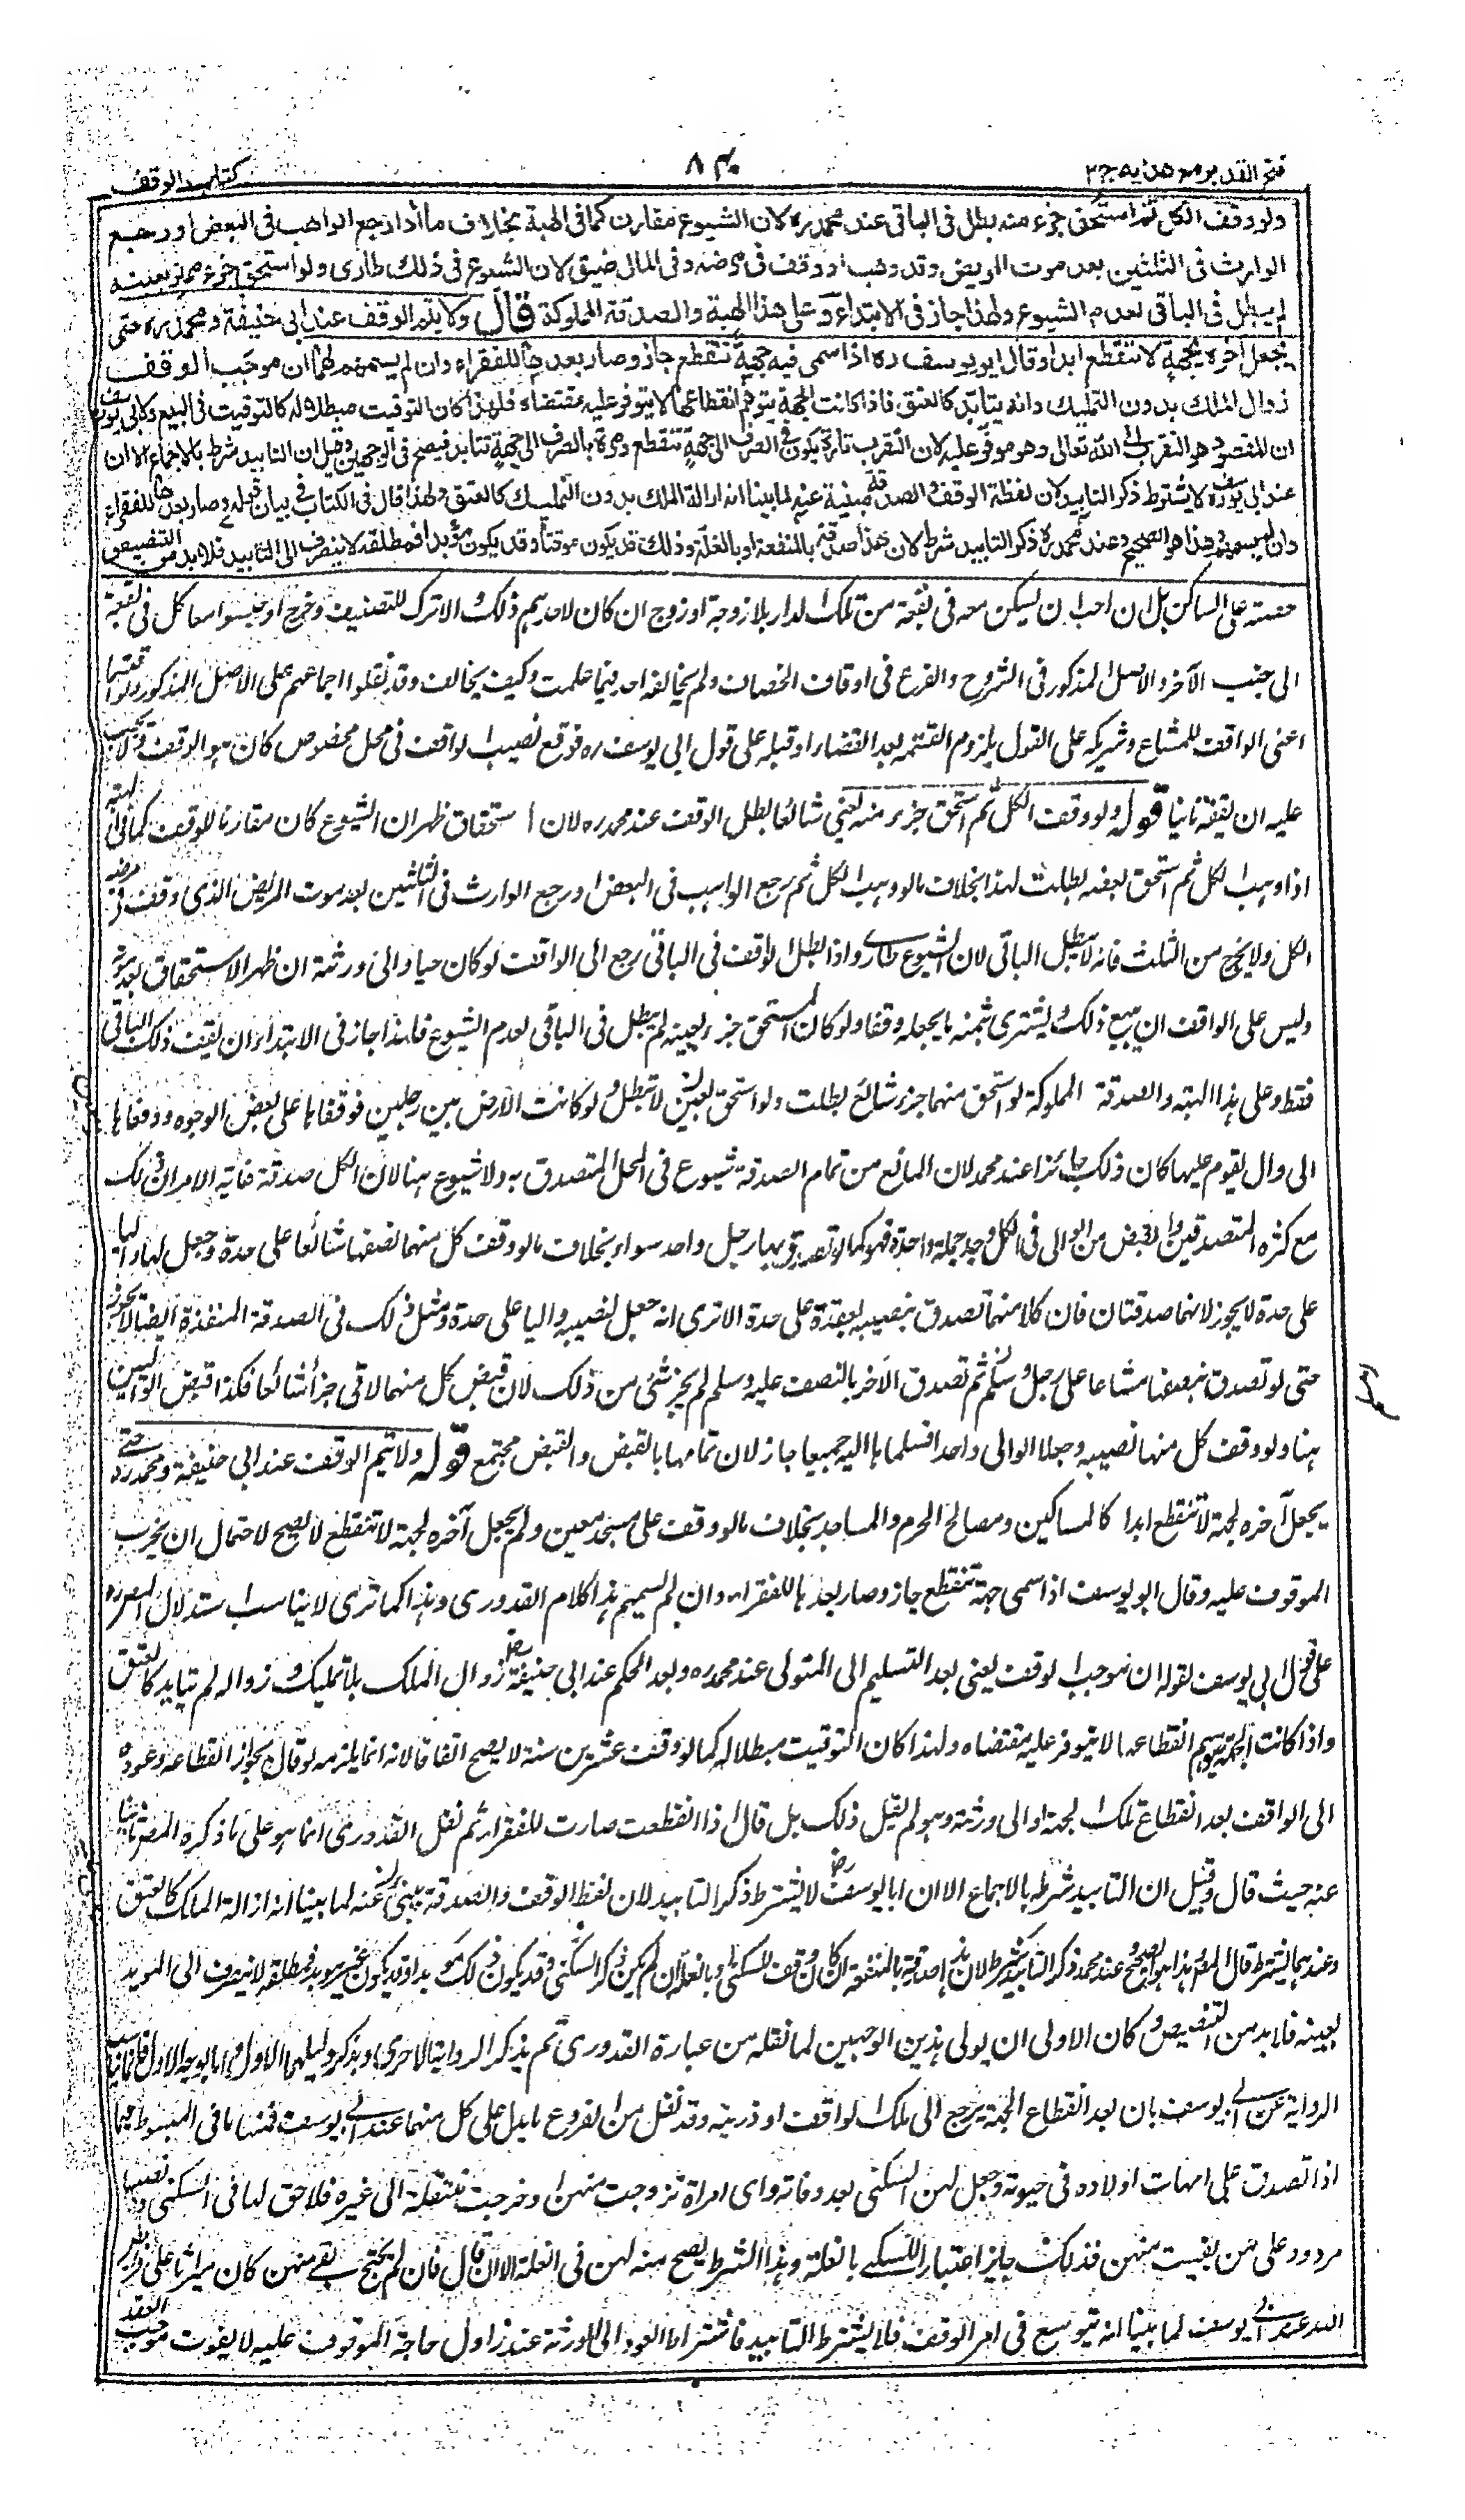 فتح القدير مع هدايه ج٢
٨٤٠
كتاب الوقف
ولو وقف الكل ثم استحق جزء منه بطل فى الباقى عند محمد ره لان الشيوع مقارن كما فى الهبة بخلاف ما اذا رجع الواهب فى البعض او رجع
الوارث فى الثلثين بعد موت المريض وقد وهب او وقف فى مرضه وفى المال ضيق لان الشيوع فى ذلك طارى ولو استحق جزء مميز بعينه
لم يبطل فى الباقى لعدم الشيوع ولهذا جاز فى الابتداء وعلى هذا الهبة والصدقة المملوكة قال ولا يتم الوقف عند ابى حنيفة ومحمد ره حتى
يجعل اخره بجهة لا تنقطع ابدا وقال ابو يوسف ره اذا سمى فيه جهة تنقطع جاز وصار بعدها للفقراء وان لم يسمهم لهما ان موجب الوقف
زوال الملك بدون التمليك وانه يتابد كالعتق فاذا كانت الجهة يتوهم انقطاعها لا يتوفر عليه مقتضاه فلهذا كان التوقيت مبطلا له كالتوقيت فى البيع ولابى يوسف
ان المقصود هو التقرب الى الله تعالى وهو موفر عليه لان التقرب تارة يكون فى الصرف الى جهة تنقطع ومرة بالصرف الى جهة تتابد فيصح فى الوجهين وقيل ان التابيد شرط بالاجماع الا ان
عند ابى يوسف ره لا يشترط ذكر التابيد لان لفظة الوقف والصدقة مبنية عنه لما بينا انه ازالة الملك بدون التمليك كالعتق ولهذا قال فى الكتاب فى بيان قوله وصار بعدها للفقراء
وان لم يسمهم وهذا هو الصحيح وعند محمد ره ذكر التابيد شرط لان هذا صدقة بالمنفعة او بالغلة وذلك قد يكون موقتا وقد يكون مؤبدا فمطلقه لا ينصرف الى التابيد فلا بد من التنصيص
حصته على الساكن بل ان احب ان يسكن معه فى بقعة من تلك الدار بلا زوجة او زوج ان كان لاحدهم ذلك والا ترك المتضيق وخرج او جلسوا معا كل فى بقعة
الى جنب الآخر والاصل المذكور فى الشروح والفرع فى اوقاف الخصاف ولم يخالفه احد فيما علمت وكيف يخالف وقد نقلوا اجماعهم على الاصل المذكور ولو اقتسما
اعنى الواقف للمشاع وشريكه على القول بلزوم القسمة بعد القضاء او قبله على قول ابى يوسف ره فوقع نصيب الواقف فى محل مخصوص كان هو الوقف ولا يجب
عليه ان يقفه ثانيا قوله ولو وقف الكل ثم استحق جزء منه يعنى شائعا بطل الوقف عند محمد ره لان استحقاق ظهر ان الشيوع كان مقارنا للوقف كما فى الهبة
اذا وهب الكل ثم استحق بعضه بطلت لهذا بخلاف ما لو وهب الكل ثم رجع الواهب فى البعض او رجع الوارث فى الثلثين بعد موت المريض الذى وقف فى مرضه
الكل ولا يخرج من الثلث فانه لا يبطل الباقى لان الشيوع طارى واذا بطل الوقف فى الباقى رجع الى الواقف لو كان حيا والى ورثته ان ظهر الاستحقاق بعد موته
وليس على الواقف ان يبيع ذلك ويشترى بثمنه ما يجعله وقفا ولو كان المستحق جزء بعينه لم يبطل فى الباقى لعدم الشيوع فلهذا جاز فى الابتداء ان يقف ذلك الباقى
فقط وعلى هذا الهبة والصدقة المملوكة لو استحق منهما جزء شائع بطلت ولو استحق بعين لا تبطل ولو كانت الارض بين رجلين فوقفاها على بعض الوجوه ودفعاها
الى وال يقوم عليها كان ذلك جائزا عند محمد لان المانع من تمام الصدقة شيوع فى المحل المتصدق به ولا شيوع هنا لان الكل صدقة غاية الامر ان ذلك
مع كثرة المتصدقين والقبض من الوالى فى الكل وجد جملة واحدة فهو كما لو تصدق بها رجل واحد سواء بخلاف ما لو وقف كل منهما نصفها شائعا على حدة وجعل لها واليا
على حدة لا يجوز لانهما صدقتان فان كلا منهما تصدق بنصيبه بعقدة على حدة الا ترى انه جعل لنصيبه واليا على حدة ومثل ذلك فى الصدقة المنفذة ايضا لا يجوز
حتى لو تصدق بنصفها مشاعا على رجل وسلم ثم تصدق الآخر بالنصف عليه وسلم لم يجز شئ من ذلك لان قبض كل منهما لاقى جزأ شائعا فكذا قبض الواليين
هنا ولو وقف كل منهما نصيبه وجعلا الوالى واحدا فسلماها اليه جميعا جاز لان تمامها بالقبض والقبض مجتمع قوله ولا يتم الوقف عند ابى حنيفة ومحمد ره حتى
يجعل آخره لجهة لا تنقطع ابدا كالمساكين ومصالح الحرم والمساجد بخلاف ما لو وقف على مسجد معين ولم يجعل آخره لجهة لا تنقطع لا يصح لاحتمال ان يخرب
الموقوف عليه وقال ابو يوسف اذا سمى جهة تنقطع جاز وصار بعدها للفقراء وان لم يسمهم هذا كلام القدورى وهذا كما ترى لا يناسب استدلال المصره
على قول ابى يوسف لقوله ان موجب الوقف يعنى بعد التسليم الى المتولى عند محمد ره وبعد الحكم عند ابى حنيفة رض زوال الملك بلا تمليك وزواله لم يتابد كالعتق
واذا كانت الجهة يتوهم انقطاعها لا يتوفر عليه مقتضاه ولهذا كان التوقيت مبطلا له كما لو وقف عشرين سنة لا يصح اتفاقا لانه انما يلزمه لو قال بجواز انقطاعه وعوده
الى الواقف بعد انقطاع تلك الجهة او الى ورثته وهو لم يقل ذلك بل قال اذا انقطعت صارت للفقراء ثم نقل القدورى انما هو على ما ذكره المصر ثانيا
عنه حيث قال وقيل ان التابيد شرط بالاجماع الا ان ابا يوسف رض لا يشترط ذكر التابيد لان لفظ الوقف والصدقة مبنى عنه لما بينا انه ازالة الملك كالعتق
وعندهما يشترط قال المصر هذا هو الصحيح وعند محمد ذكر التابيد شرط لان هذا صدقة بالمنفعة ان كان وقف للسكنى او بالغلة ان لم يكن ذكر السكنى وقد يكون ذلك مؤبدا وقد يكون غير مؤبد فمطلقه لا ينصرف الى المؤبد
بعينه فلا بد من التنصيص وكان الاولى ان يولى هذين الوجهين لما نقله من عبارة القدورى ثم يذكر الرواية الاخرى ويذكر دليلهما الاول واما الوجه الاول فانما يناسب
الرواية عن ابى يوسف بان بعد انقطاع الجهة يرجع الى ملك الواقف او ذريته وقد نقل من الفروع ما يدل على كل منهما عند ابى يوسف فمنها ما فى المبسوط فيما
اذا تصدق على امهات اولاده فى حيوته وجعل لهن السكنى بعد وفاته واى امراة تزوجت منهن او خرجت منتقلة الى غيره فلا حق لها فى السكنى ونصيبها
مردود على من بقيت منهن فذلك جايز اعتبارا للسكنى بالغلة وهذا الشرط يصح منه لهن فى الغلة الا ان قال فان لم يحتج بقى منهن كان ميراثا على فرايض
الله عند ابى يوسف لما بينا انه يتوسع فى امر الوقف فلا يشترط التابيد فاشتراط العود الى الورثة عند زوال حاجة الموقوف عليه لا يفوت موجب العقد